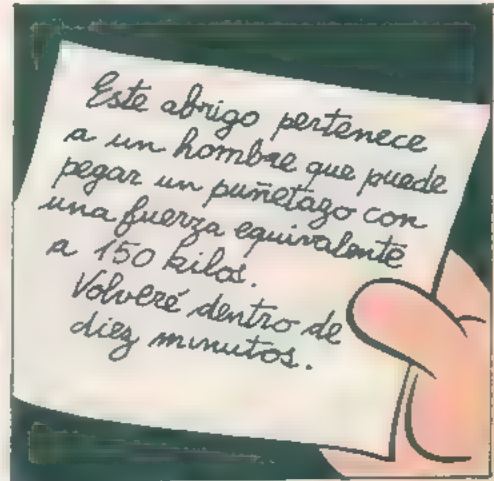 Este abrigo pertenece
a un hombre que puede
pegar un puñetazo con
una fuerza equivalente
a 150 kilos.
Volveré dentro de
diez minutos.